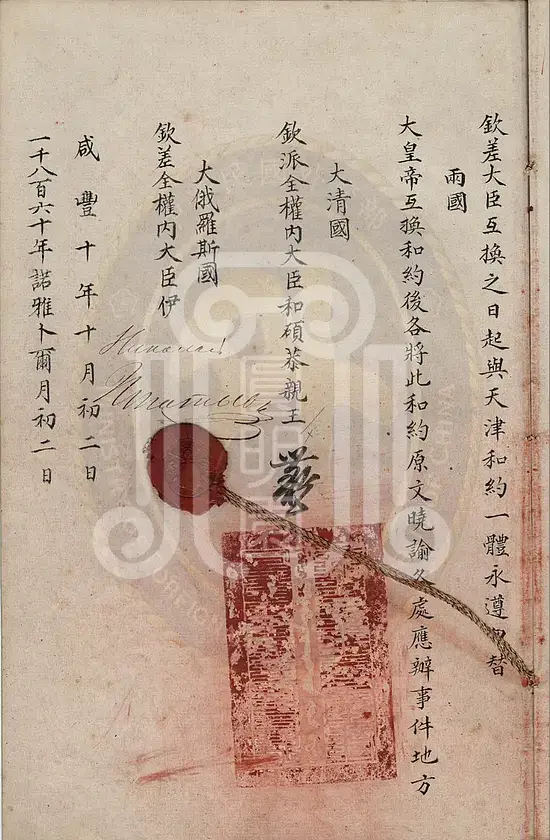 欽差大臣互換之日起與天津和約一體永遵勿替
兩國
大皇帝互換和約後各將此和約原文曉諭各處應辦事件地方
大清國
欽派全權內大臣和碩恭親王
大俄羅斯國
欽差全權內大臣伊
Николай
Игнатьев
咸豐十年十月初二日
一千八百六十年諾雅卜爾月初二日